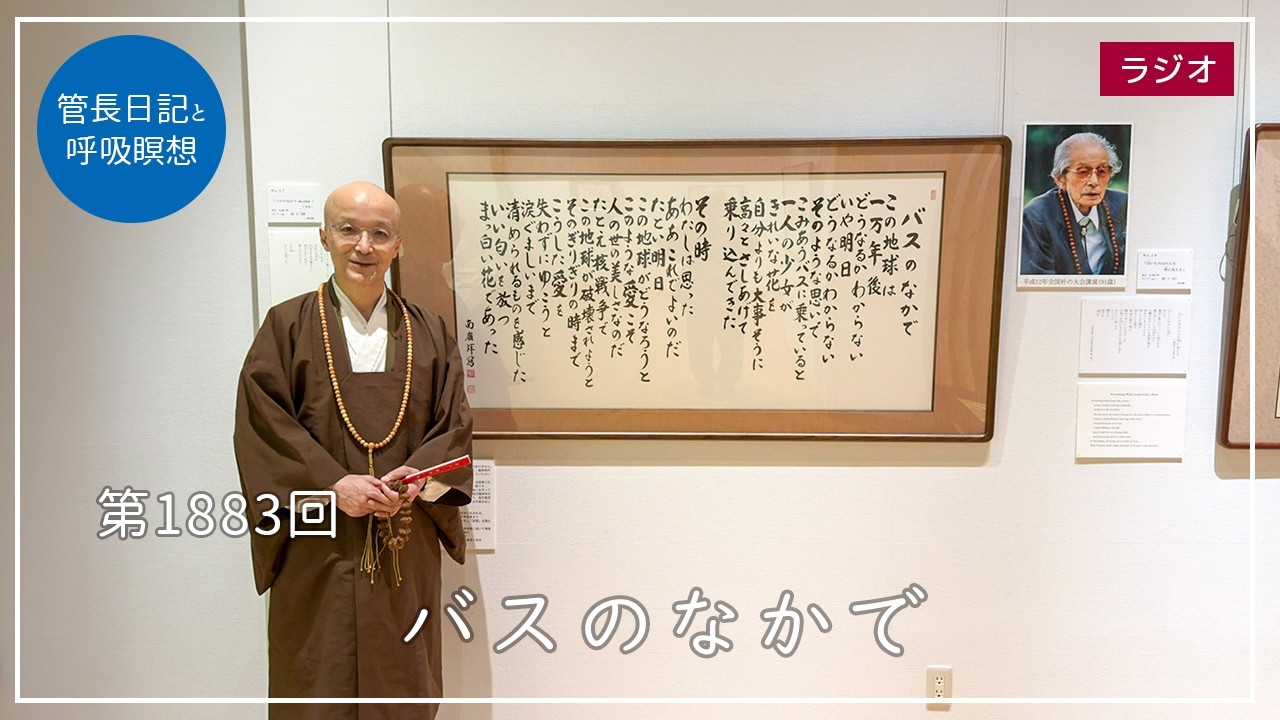 管長日記と
呼吸瞑想
ラジオ
バスのなかで
この地球は
一万年後
どうなるかわからない
いや明日
どうなるかわからない
そのような思いで
こみあうバスに乗っていると
一人の少女が
きれいな花を
自分よりも大事そうに
高々とさしあげて
乗り込んできた
その時
わたしは思った
ああこれでよいのだ
たとい明日
この地球がどうなろうと
このような愛こそ
人の世の美しさなのだ
たとえ核戦争で
この地球が破壊されようと
そのぎりぎりの時まで
こうした愛を
失わずにゆこうと
涙ぐましいまで
清められるものを感じた
いい匂いを放つ
まっ白い花であった
平成12年全国朴の大会講演(91歳)
第1883回
バスのなかで